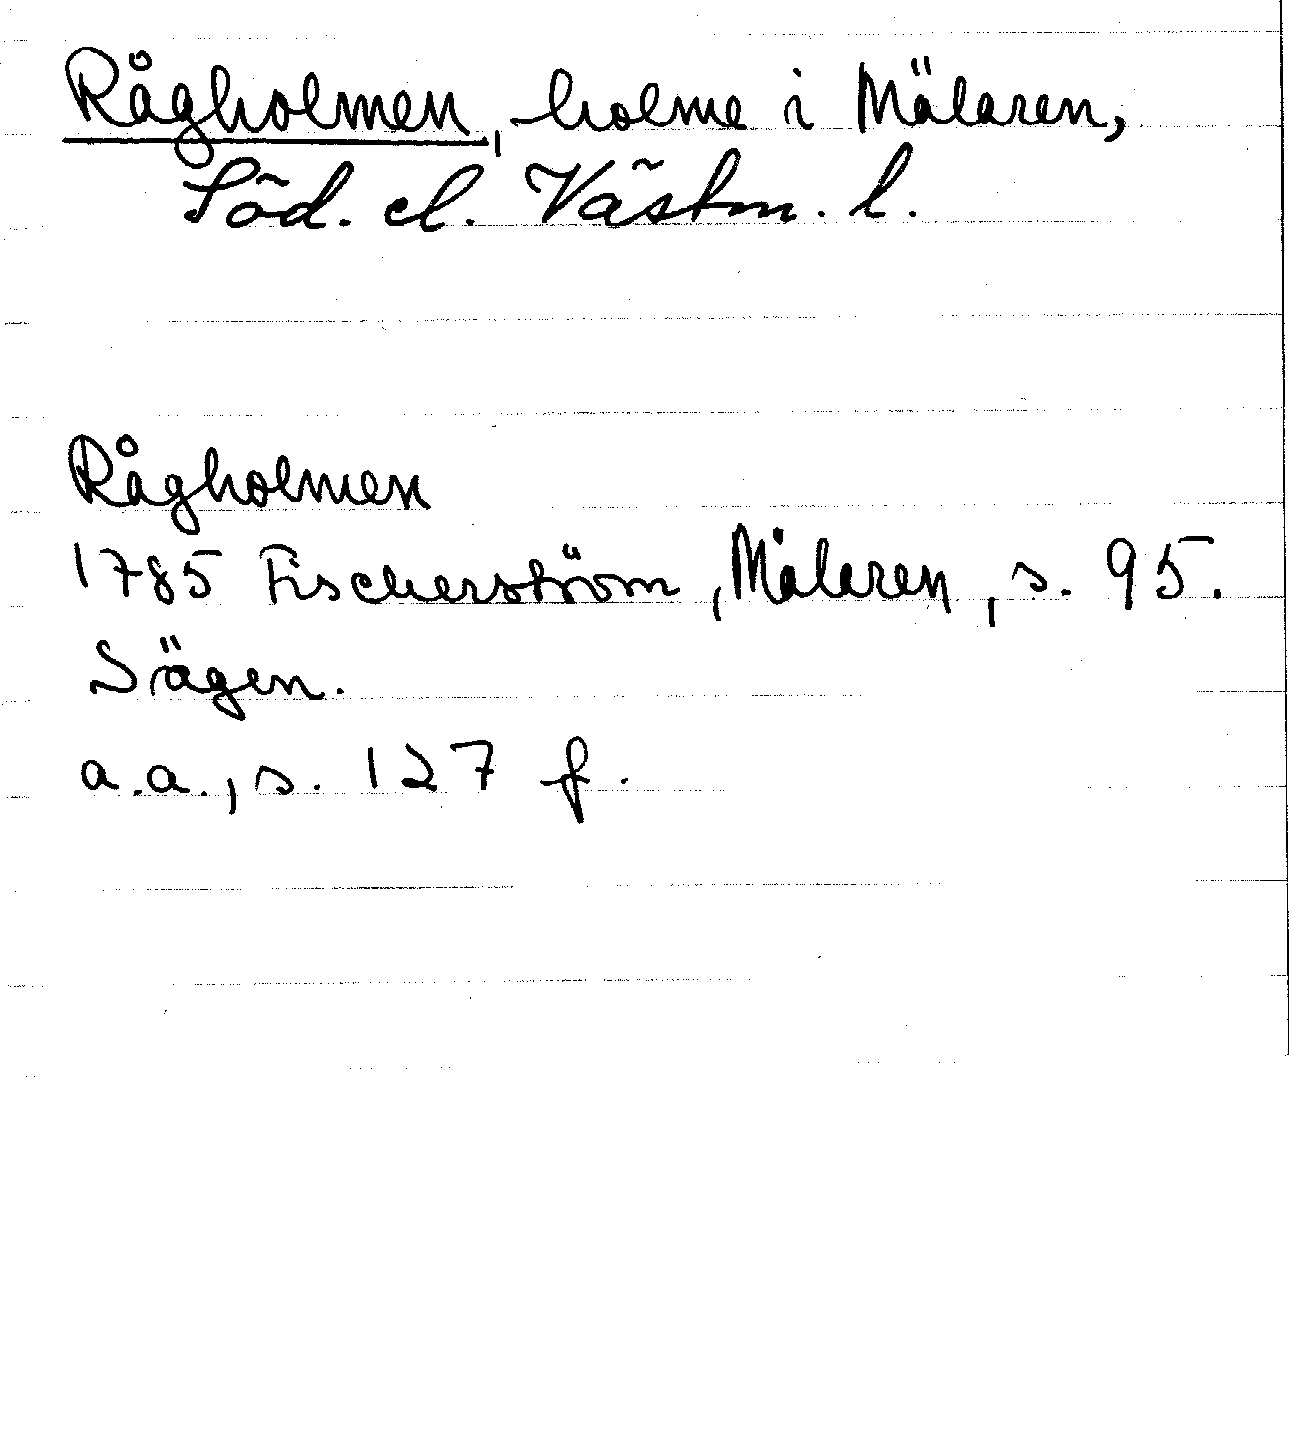 Rågholmen, holme i Mälaren,
Söd. el. Västm. l.
Rågholmen
1785 Fischerström, Mälaren, s. 95.
Sägen.
a.a., s. 127 f.